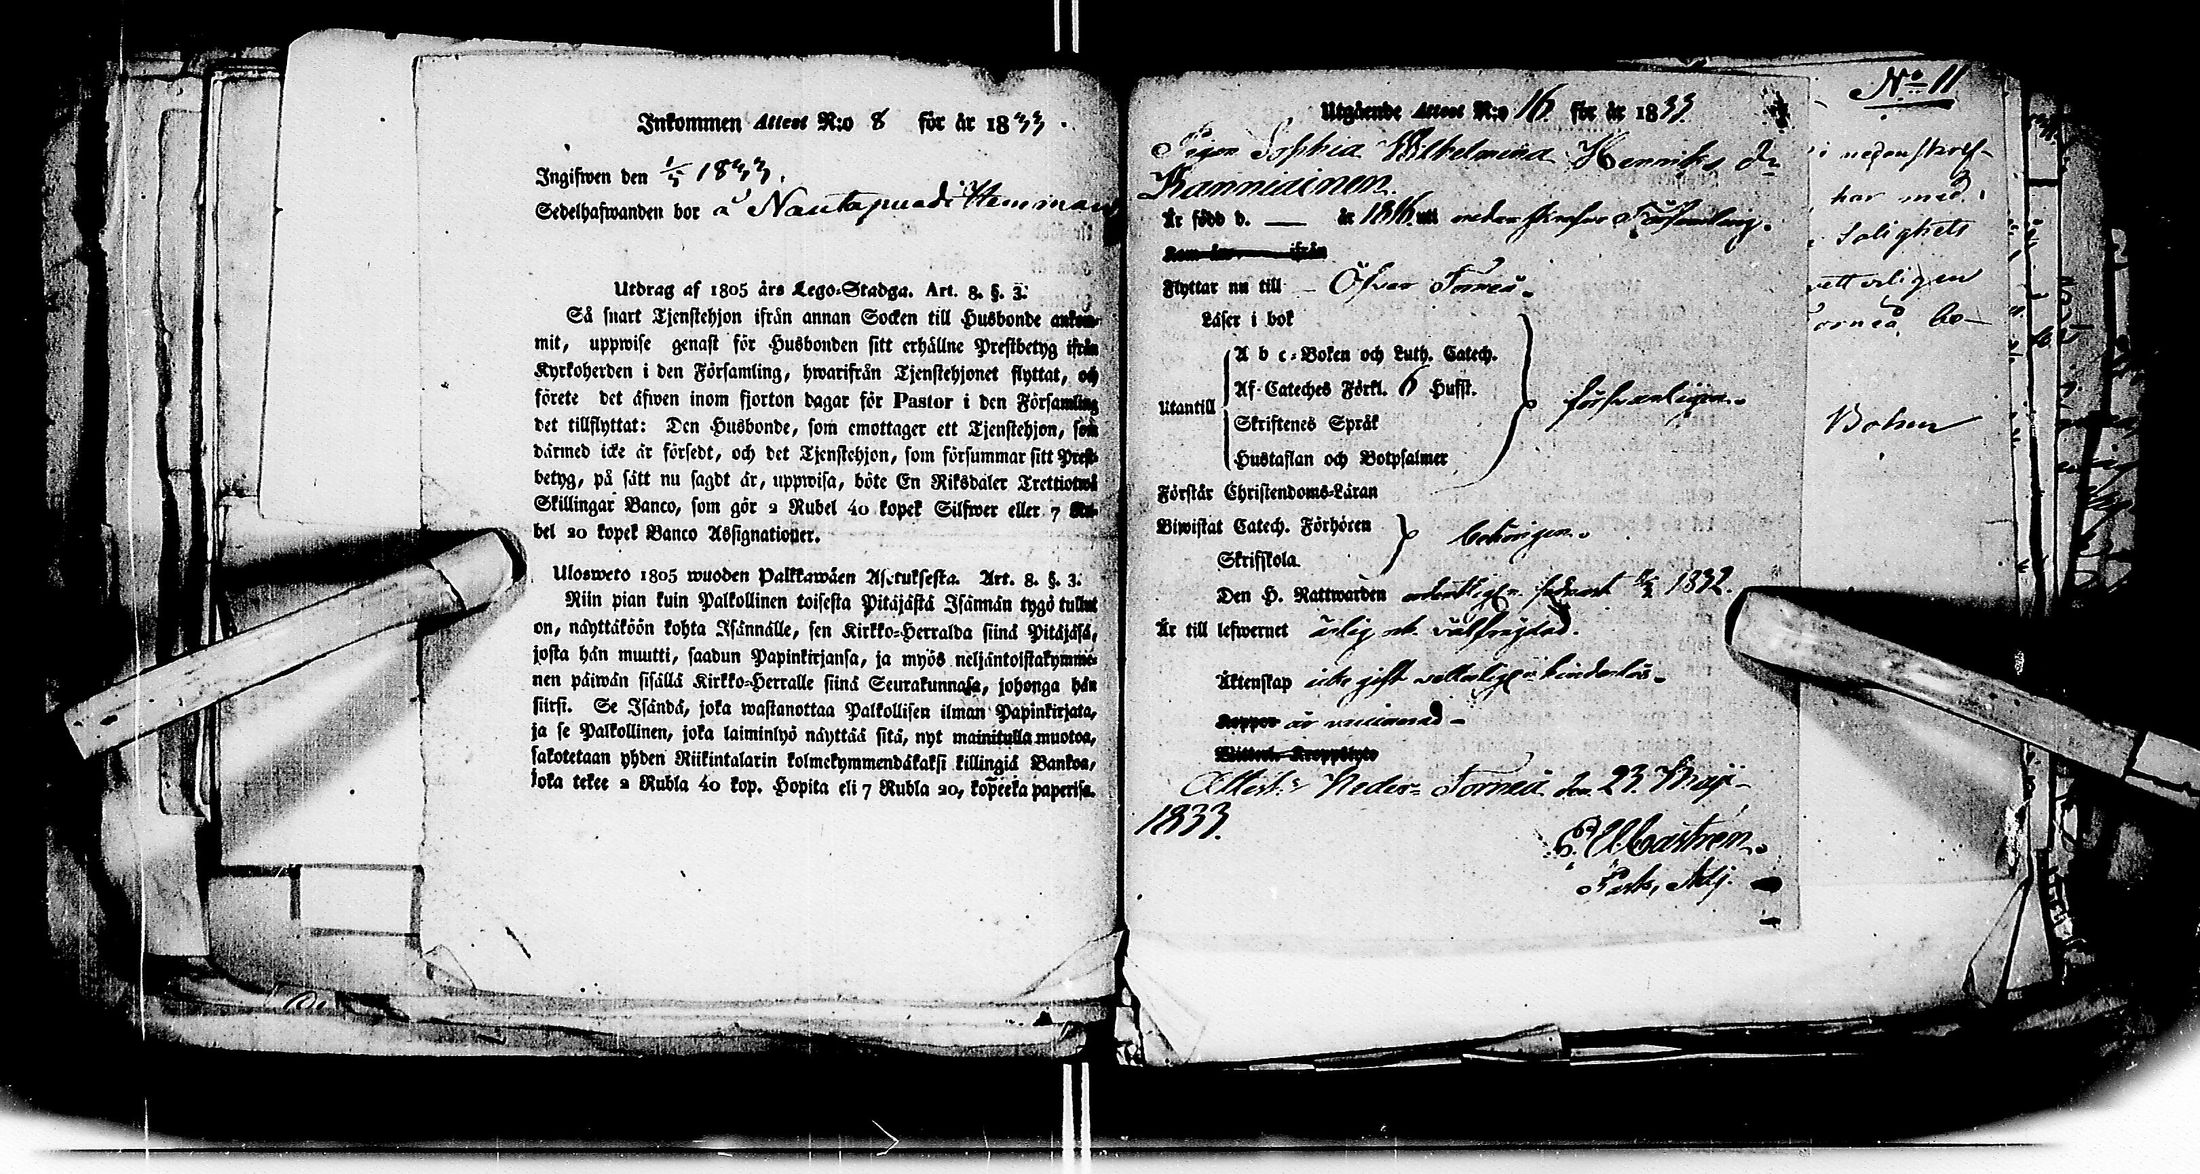 Inkommen Attest N:o 8 för år 1833.
Ingifwen den 1/5 1833.
Sedelhafwanden bor å Nautapuodi Hemman
Utdrag af 1805 års Lego-Stadga. Art. 8. §. 3.
Så snart Tjenstehjon ifrån annan Socken till Husbonde ankom-
mit, uppwise genast för Husbonden sitt erhållne Prestbetyg ifrån
Kyrkoherden i den Församling, hwarifrån Tjenstehjonet flyttat, och
förete det äfwen inom fjorton dagar för Pastor i den Församling
det tillflyttat: Den Husbonde, som emottager ett Tjenstehjon, som
därmed icke är försedt, och det Tjenstehjon, som försummar sitt Prest-
betyg, på sätt nu sagdt är, uppwisa, böte En Riksdaler Trettiotwå
Skillingar Banco, som gör 2 Rubel 40 kopek Silfwer eller 7 Ru-
bel 20 kopek Banco Assignationer.
Ulosweto 1805 wuoden Palkkawäen Asetuksesta. Art. 8. §. 3.
Niin pian kuin Palkollinen toisesta Pitäjästä Isännän tygö tullut
on, näyttäköön kohta Isännälle, sen Kirkko-Herralda siinä Pitäjäsä,
josta hän muutti, saadun Papinkirjansa, ja myös neljäntoistakymme-
nen päiwän sisällä Kirkko-Herralle siinä Seurakunnasa, johonga hän
siirsi. Se Isändä, joka wastanottaa Palkollisen ilman Papinkirjata,
ja se Palkollinen, joka laiminlyö näyttää sitä, nyt mainitulla muotoa,
sakotetaan yhden Riikintalarin kolmekymmendäkaksi killingiä Bankoa,
joka tekee 2 Rubla 40 kop. Hopita eli 7 Rubla 20, kopeeka paperisa.
Utgående Attest N:o 16 för år 1833.
Pigan Sophia Wilhelmina Henriks dr
Kanniainen
Är född d. — år 1816 uti nedanskrefne Församling.
Kom år ifrån
Flyttar nu till Öfver Torneå.
Läser i bok
A b c-Boken och Luth. Catech.
Af Cateches Förkl. 6 Hufst.
Utantill
Skriftenes Språk
Hustaflan och Botpsalmer
försvarligen.
Förstår Christendoms-Läran
Biwistat Catech. Förhören
Skriftskola.
behörigen.
Den H. Nattwarden ordentligen sednast 1832.
Är till lefwernet ärlig och välfrejdad.
Äktenskap icke gift vetterligen hinderlös.
Koppor är vaccinerad
Witterl. Kroppslyte
Attest. Neder-Torneå den 23 Maji
1833.
Castrén.
Past. Adj.
No 11
i nedanskref-
har med
Salighets
vetterligen
Torneå, be-
Bohm